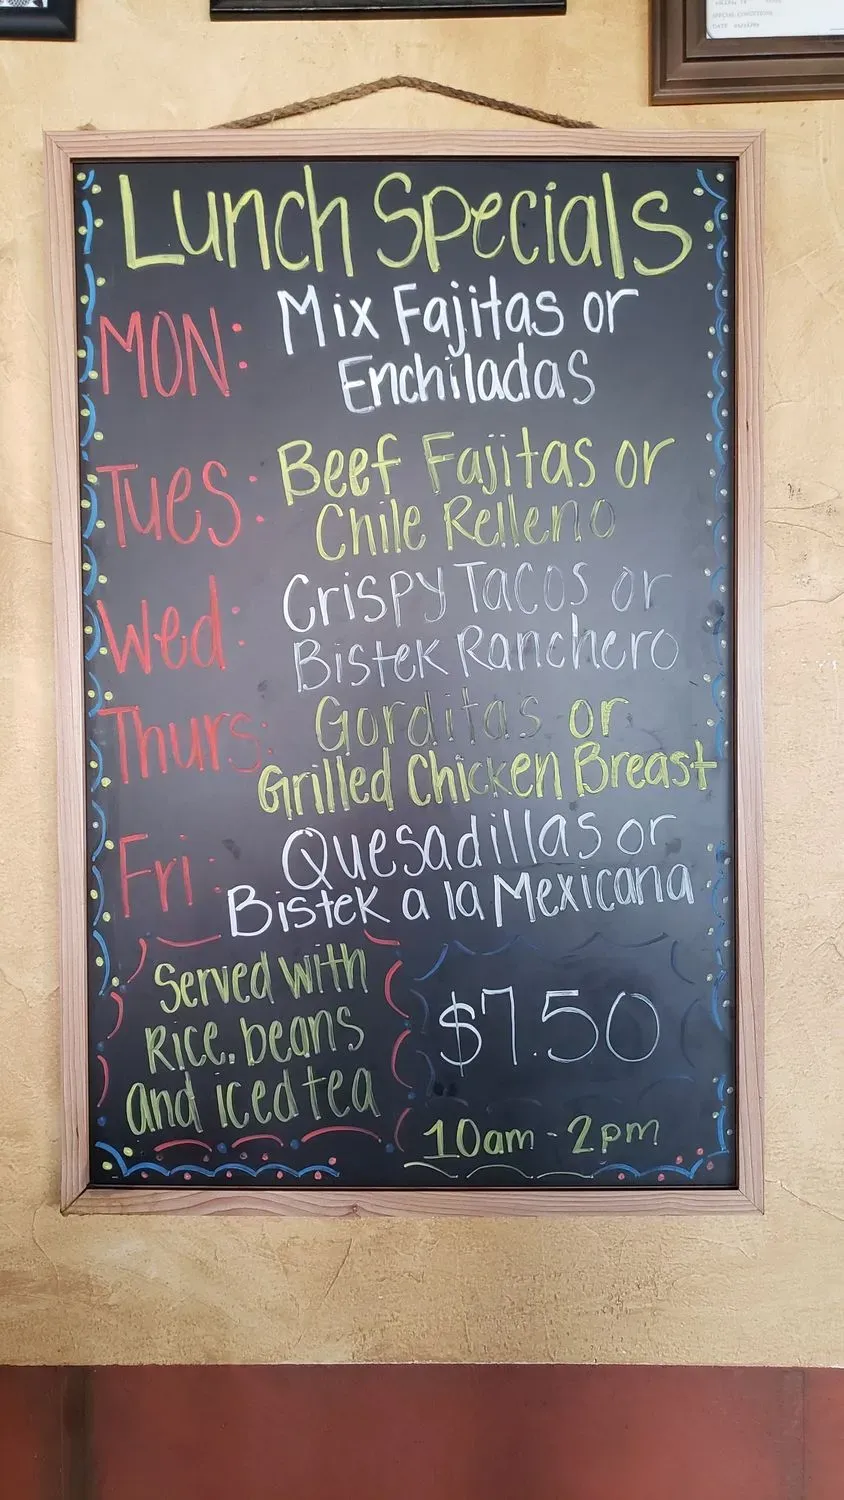 Lunch Specials
MON: Mix Fajitas or
Enchiladas
Tues: Beef Fajitas or
Chile Relleno
Wed: Crispy Tacos or
Bistek Ranchero
Thurs: Gorditas or
Grilled Chicken Breast
Fri: Quesadillas or
Bistek a la Mexicana
Served with
Rice, beans
and iced tea
$7.50
10am - 2pm
SPECIAL CONDITIONS
DATE